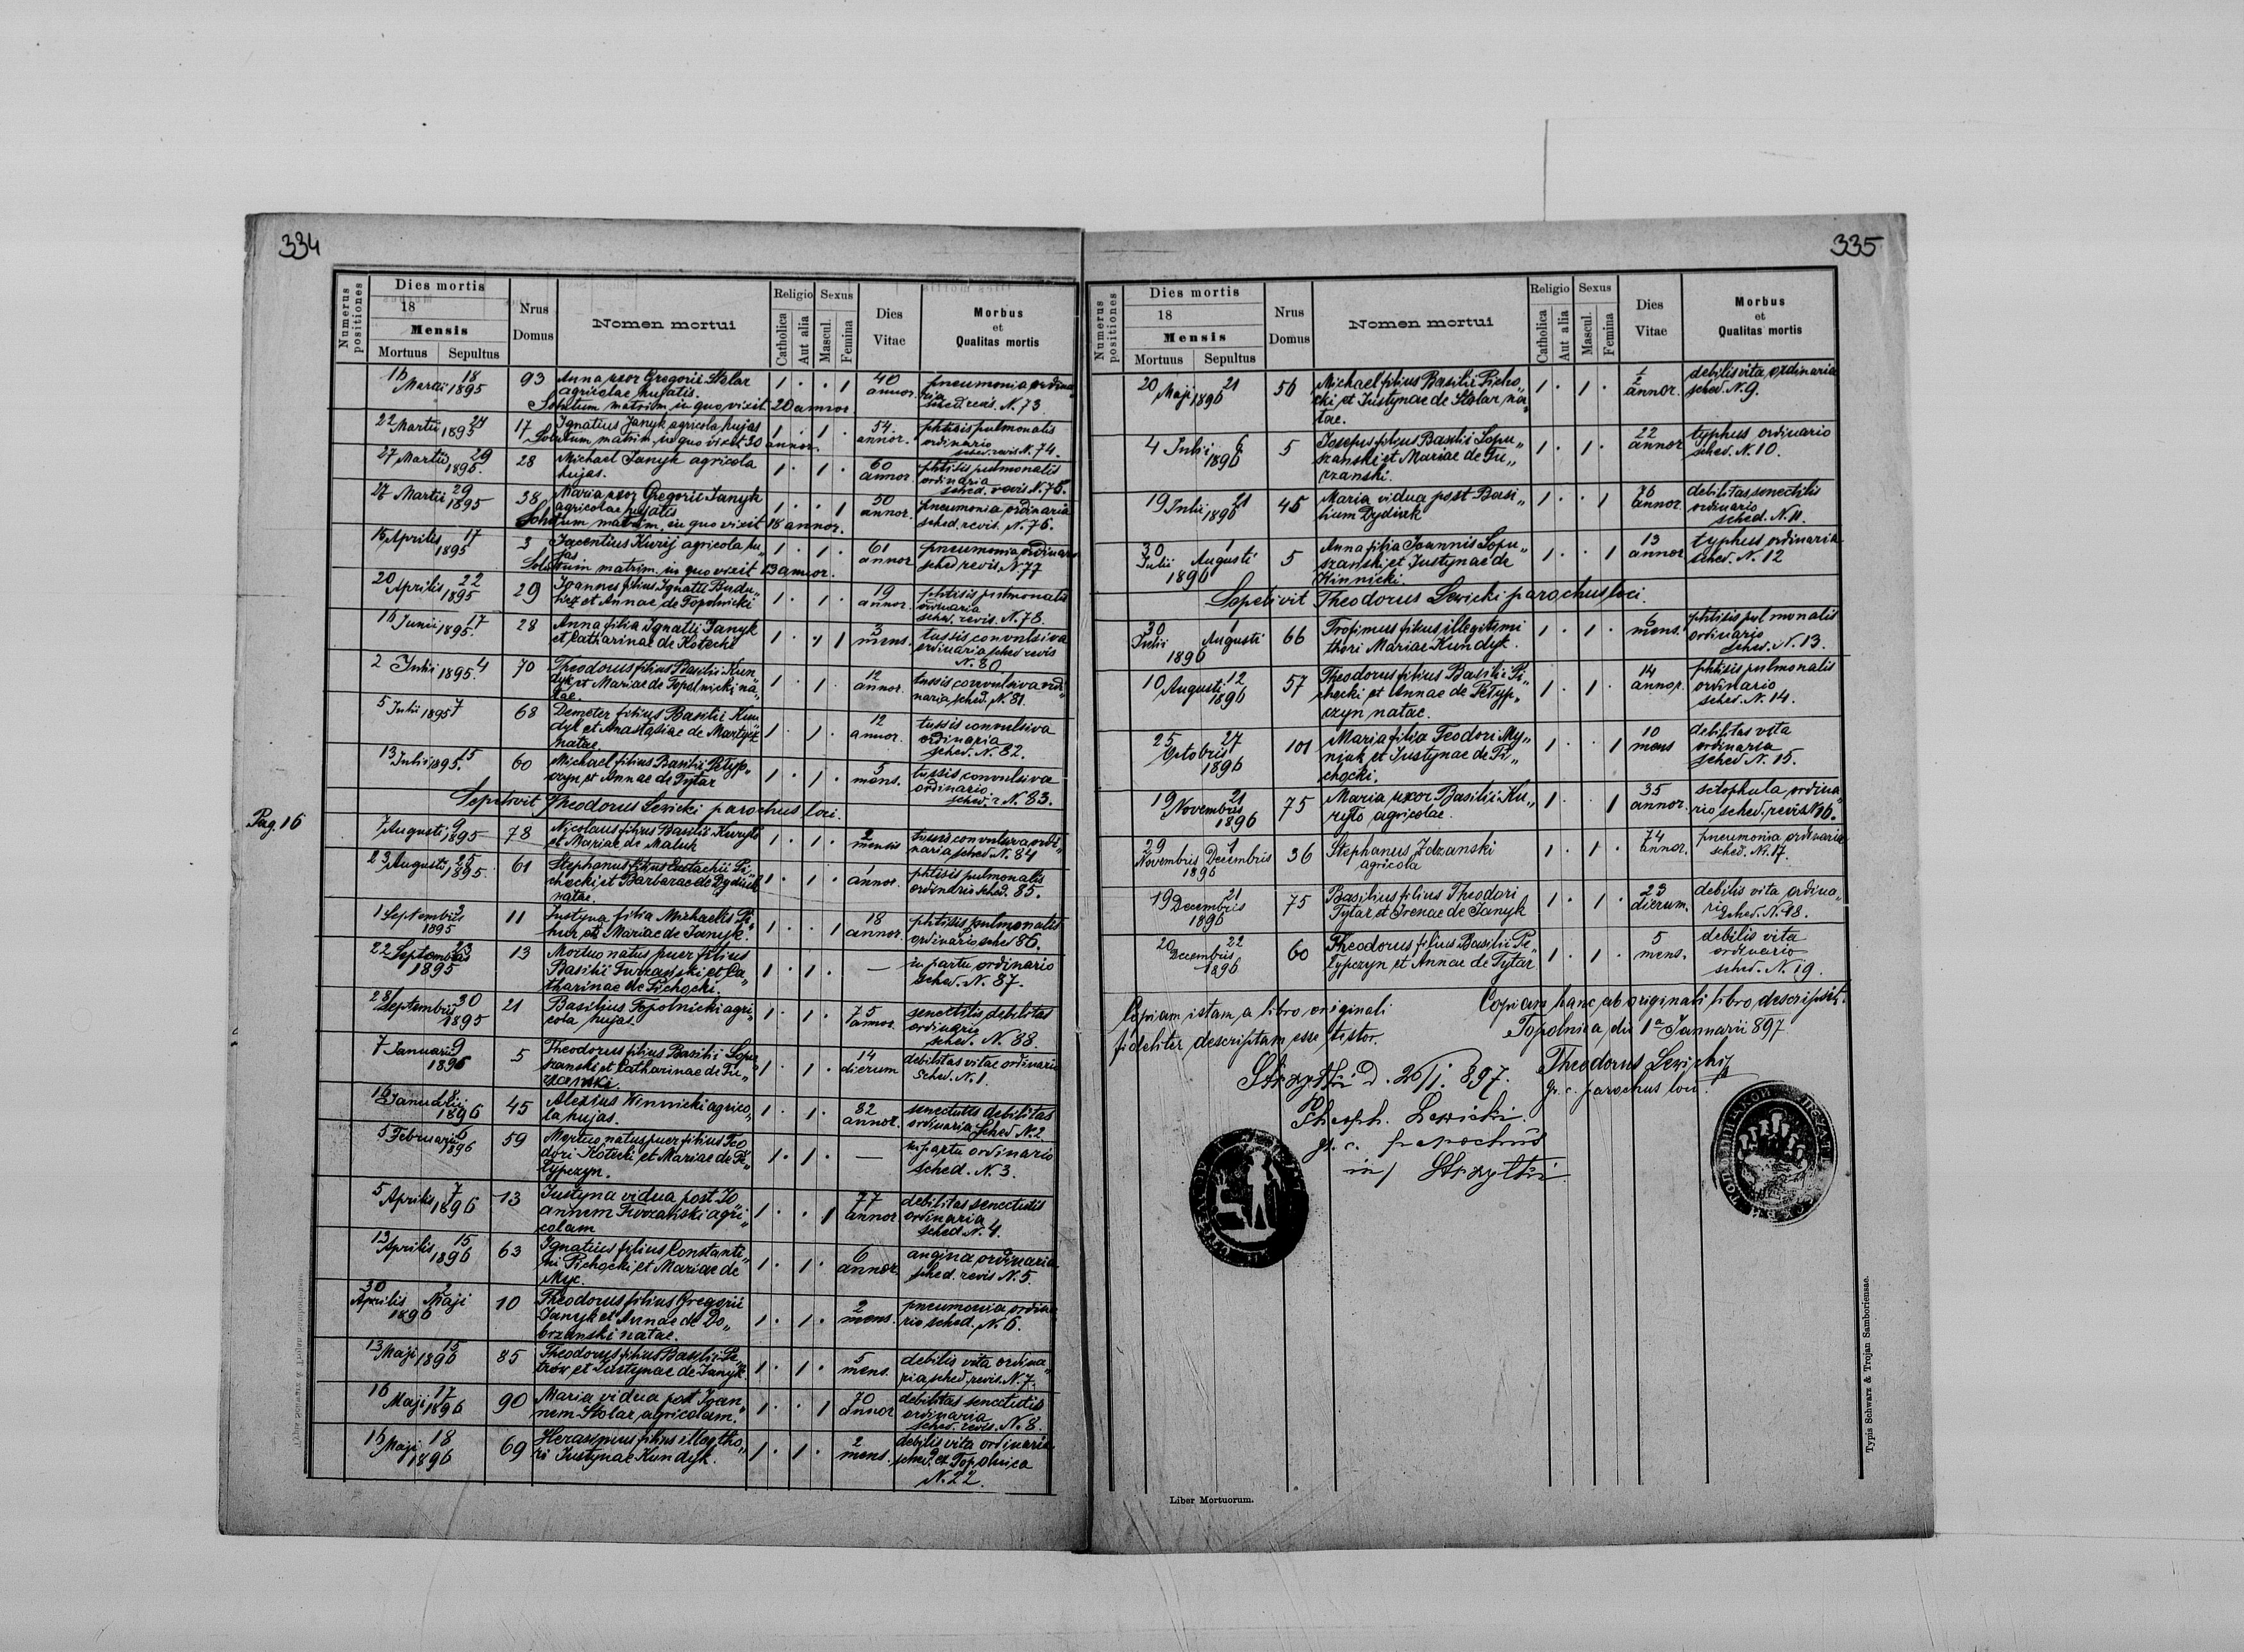 334
Numerus positiones
Dies mortis
18
Mensis
Mortuus Sepultus
Nrus Domus
Nomen mortui
Religio
Catholica
Aut alia
Sexus
Mascul.
Femina
Dies Vitae
Morbus et Qualitas mortis
16 18 Martii 1895 93 Anna uxor Gregorii Stolar 1 . . 1 40 annor. pneumonia ordina„
agricolae hujatis. ria
Solutum matrim. in quo vixit 20 annor. sched. revis. N. 73.
22 Martii 24 1895 17 Ignatius Janyk agricola hujas 1 . 1 . 54 annor. phtisis pulmonalis
Solutum matrim. in quo vixit 30 annor. ordinario
sched. revis N. 74.
27 Martii 29 1895. 28 Michael Janyk agricola 1 . 1 . 60 annor. phtisis pulmonalis
hujas. ordinaria
sched. revis N. 75.
27 Martii 29 1895 38 Maria uxor Gregorii Janyk 1 . . 1 50 annor. pneumonia ordinaria
agricolae hujatis sched. revis. N. 76.
Solutum matrim. in quo vixit 18 annor.
15 Aprilis 17 1895 3 Jacentius Kurij agricola hu„ 1 . 1 . 61 annor pneumonia ordinaria
jas. sched revis N. 77
Solutum matrim. in quo vixit 13 annor.
20 Aprilis 22 1895 29 Joannes filius Ignatii 1 . 1 . 19 annor. phtisis pulmonalis
et Annae de Topolnicki ordinaria
sched. revis. N. 78.
16 Junii 17 1895. 28 Anna filia Ignatii Janyk 1 . 1 3 mens. tussis convulsiva
et Catharinae de Kotecki ordinaria sched revis
N. 80
2 Julii 1895. 4 70 Theodorus filius Basilii Kun„ 1 . 1 . 12 annor. tussis convulsiva ordi„
dyk et Mariae de Topolnicki na„ naria sched. N. 81.
tae
5 Julii 1895 7 68 Demeter filius Basilii Kun 1 . 1 . 12 annor. tussis convulsiva
dyk et Anastasiae de ordinaria
natae sched. N. 82.
13 Julii 1895. 15 60 Michael filius Basilii Petyp„ 1 . 1 . 5 mens. tussis convulsiva
czyn et Annae de Tytar ordinario
sched. N. 83.
Sepelivit Theodorus Lewicki parochus loci.
Pag. 16
7 Augusti 9 1895 78 Nicolaus filius Basilii Kuryło 1 . 1 . 2 mensis tussis convulsiva ordi„
et Mariae de naria sched N. 84
23 Augusti 25 1895. 61 Stephanus filius Eustachii Pi„ 1 . 1 . 1 annor. phtisis pulmonalis
chocki et Barbarae de Dydiuk ordinario sched. 85.
natae.
1 Septembris 3 1895 11 Justyna filia Michaelis 1 . . 1 18 annor. phtisis pulmonalis
et Mariae de Janyk. ordinario sched 86.
22 Septembris 23 1895 13 Mortuo natus puer filius 1 . 1 . — in partu ordinario
Basilii Turzański et Ca„ sched. N. 87.
tharinae de Pichocki.
28 Septembris 30 1895 21 Basilius Topolnicki agri„ 1 . 1 . 75 annor. senectutis debilitas
cola hujas. ordinario
sched. N. 88.
7 Januarii 9 1896 5 Theodorus filius Basilii Łopu„ 1 . 1 . 14 dierum debilitas vitae ordinario
szanski et Catharinae de Tu„ Sched. N. 1.
rzanski.
16 Januarii 18 1896 45 Alexius Winnicki agrico„ 1 . 1 . 82 annor. senectutis debilitas
la hujas. ordinaria sched N. 2
5 Februarii 6 1896 59 Mortuo natus puer filius Teo 1 . 1 . — in partu ordinario
dori Kotecki et Mariae de Pe„ sched. N. 3.
typczyn.
5 Aprilis 7 1896 13 Justyna vidua post Jo 1 . . 1 77 annor debilitas senectutis
annem Turzański agri„ ordinaria
colam sched. N. 4.
13 Aprilis 15 1896 63 Ignatius filius Constanti„ 1 . 1 . 6 annor. angina ordinaria
ni Pichocki et Mariae de sched. revis N. 5.
Myc.
30 Aprilis 2 Maji 1896 10 Theodorus filius Gregorii 1 . 1 . 2 mens. pneumonia ordina„
Janyk et Annae de Do„ rio sched. N. 6.
brzanski natae.
13 Maji 15 1896 85 Theodorus filius Basilii Pe„ 1 . 1 . 5 mens. debilis vita ordina„
trów et Justynae de Janyk. ria sched. revis. N. 7.
16 Maji 17 1896 90 Maria vidua post Joan„ 1 . . 1 70 annor debilitas senectutis
nem Stolar, agricolam. ordinaria
sched. revis. N. 8.
16 Maji 18 1896 69 Herasimus filius illegitho„ 1 . 1 . 2 mens. debilis vita ordinaria
ri Justynae Kundyk. sched. ex Topolnica
N. 22.
335
Numerus positiones
Dies mortis
18
Mensis
Mortuus Sepultus
Nrus Domus
Nomen mortui
Religio
Catholica
Aut alia
Sexus
Mascul.
Femina
Dies Vitae
Morbus et Qualitas mortis
20 Maji 21 1896 56 Michael filius Basilii Picho„ 1 . 1 . 1/2 annor. debilis vita, ordinaria
cki et Justynae de Stolar na„ sched. N. 9.
tae.
4 Julii 6 1896 5 Josephus filius Basilii Łopu„ 1 . 1 . 22 annor typhus ordinario
szanski et Mariae de Tu„ sched. N. 10.
rzanski.
19 Julii 21 1896 45 Maria vidua post Basi„ 1 . . 1 76 annor. debilitas senectilis
lium Dydiuk ordinario
sched. N. 11.
30 Julii 1 Augusti 1896 5 Anna filia Joannis Łopu„ 1 . . 1 13 annor typhus ordinaria
szanski et Justynae de sched. N. 12
Winnicki.
Sepelivit Theodorus Lewicki parochus loci.
30 Julii 1 Augusti 1896 66 Trofimus filius illegitimi 1 . 1 . 6 mens. phtisis pulmonalis
thori Mariae Kundyk. ordinario
sched. N. 13.
10 Augusti 12 1896 57 Theodorus filius Basilii Pi„ 1 . 1 . 14 annor. phtisis pulmonalis
chocki et Annae de Petyp„ ordinario
czyn natae. sched. N. 14.
25 Octobris 27 1896 101 Maria filia Teodori My„ 1 . . 1 10 mens debilitas vita
niuk et Justynae de Pi„ ordinaria
chocki. sched N. 15.
19 Novembris 21 1896 75 Maria uxor Basilii Ku„ 1 . 1 35 annor. ordina„
ryło agricolae. rio sched. revis N. 16.
29 Novembris 1 Decembris 1896 36 Stephanus Zdzanski 1 . 1 . 74 annor. pneumonia ordinaria
agricola sched. N. 17.
19 Decembris 21 1896 75 Basilius filius Theodori 1 . 1 . 23 dierum. debilis vita ordina„
Tytar et Irenae de Janyk ria sched. N. 18.
20 Decembris 22 1896 60 Theodorus filius Basilii Pe„ 1 . 1 . 5 mens. debilis vita
typczyn et Annae de Tytar ordinario
sched. N. 19.
Copiam istam a libro originali
fideliter descriptam esse testor.
Strzyłki d. 26/I. 897.
Theoph. Lewicki
gr. c. parochus
in Strzyłki
Copiam hanc ab originali libro descripsit.
Topolnica die 1a Januarii 897
Theodorus Lewicki
gr. c. parochus loci.
Liber Mortuorum.
Typis Schwarz & Trojan Samboriensae.